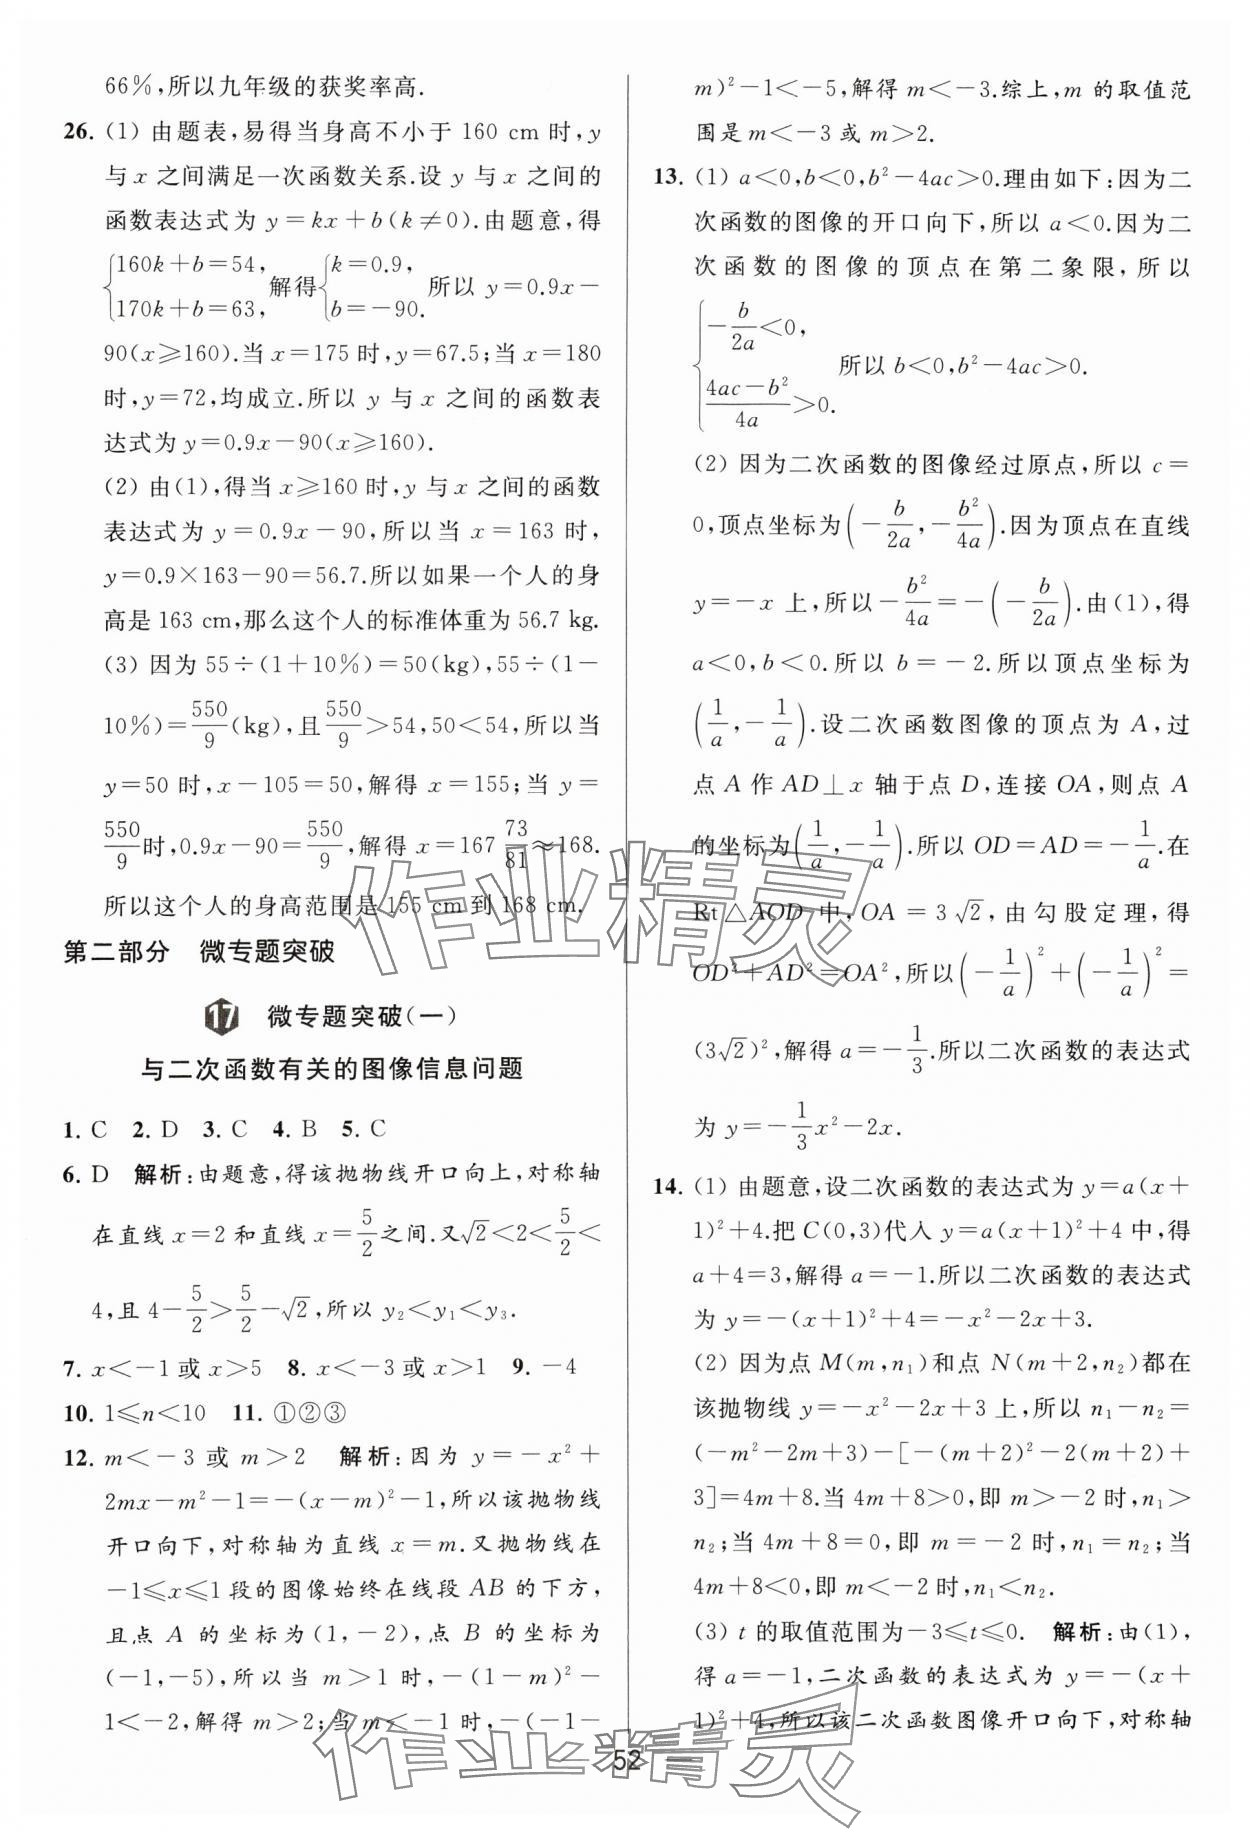 66%,所以九年级的获奖率高.
26. (1) 由题表,易得当身高不小于 160 cm 时,y
与 x 之间满足一次函数关系.设 y 与 x 之间的
函数表达式为 y=kx+b(k≠0).由题意,得
{160k+b=54, 170k+b=63, 解得 {k=0.9, b=-90. 所以 y=0.9x-
90(x≥160).当 x=175 时,y=67.5;当 x=180
时,y=72,均成立.所以 y 与 x 之间的函数表
达式为 y=0.9x-90(x≥160).
(2) 由(1),得当 x≥160 时,y 与 x 之间的函数
表达式为 y=0.9x-90,所以当 x=163 时,
y=0.9×163-90=56.7.所以如果一个人的身
高是 163 cm,那么这个人的标准体重为 56.7 kg.
(3) 因为 55÷(1+10%)=50(kg),55÷(1-
10%)=550/9(kg),且550/9>54,50<54,所以当
y=50 时,x-105=50,解得 x=155;当 y=
550/9时,0.9x-90=550/9,解得 x=167 73/81≈168.
所以这个人的身高范围是 155 cm到 168 cm.
第二部分 微专题突破
17 微专题突破(一)
与二次函数有关的图像信息问题
1. C 2. D 3. C 4. B 5. C
6. D 解析:由题意,得该抛物线开口向上,对称轴
在直线 x=2 和直线 x=5/2之间.又√2<2<5/2<
4,且 4-5/2>5/2-√2,所以 y₂<y₁<y₃.
7. x<-1或 x>5 8. x<-3或 x>1 9. -4
10. 1≤n<10 11. ①②③
12. m<-3 或 m>2 解析:因为 y=-x²+
2mx-m²-1=-(x-m)²-1,所以该抛物线
开口向下,对称轴为直线 x=m.又抛物线在
-1≤x≤1 段的图像始终在线段 AB 的下方,
且点 A 的坐标为(1,-2),点 B 的坐标为
(-1,-5),所以当 m>1 时,-(1-m)²-
1<-2,解得 m>2;当 m<-1 时,-(-1-
m)²-1<-5,解得 m<-3.综上,m 的取值范
围是 m<-3 或 m>2.
13. (1) a<0,b<0,b²-4ac>0.理由如下:因为二
次函数的图像的开口向下,所以 a<0.因为二
次函数的图像的顶点在第二象限,所以
{-b/2a<0, (4ac-b²)/4a>0. 所以 b<0,b²-4ac>0.
(2) 因为二次函数的图像经过原点,所以 c=
0,顶点坐标为(-b/2a,-b²/4a).因为顶点在直线
y=-x 上,所以-b²/4a=-(-b/2a).由(1),得
a<0,b<0.所以 b=-2.所以顶点坐标为
(1/a,-1/a).设二次函数图像的顶点为 A,过
点 A 作 AD⊥x 轴于点 D,连接 OA,则点 A
的坐标为(1/a,-1/a).所以 OD=AD=-1/a.在
Rt△AOD 中,OA=3√2,由勾股定理,得
OD²+AD²=OA²,所以(-1/a)²+(-1/a)²=
(3√2)²,解得 a=-1/3.所以二次函数的表达式
为 y=-1/3x²-2x.
14. (1) 由题意,设二次函数的表达式为 y=a(x+
1)²+4.把 C(0,3)代入 y=a(x+1)²+4 中,得
a+4=3,解得 a=-1.所以二次函数的表达式
为 y=-(x+1)²+4=-x²-2x+3.
(2) 因为点 M(m,n₁)和点 N(m+2,n₂)都在
该抛物线 y=-x²-2x+3 上,所以 n₁-n₂=
(-m²-2m+3)-[-(m+2)²-2(m+2)+
3]=4m+8.当 4m+8>0,即 m>-2 时,n₁>
n₂;当 4m+8=0,即 m=-2 时,n₁=n₂;当
4m+8<0,即 m<-2 时,n₁<n₂.
(3) t 的取值范围为-3≤t≤0. 解析:由(1),
得 a=-1,二次函数的表达式为 y=-(x+
1)²+4,所以该二次函数图像开口向下,对称轴
52
作业精灵
作业精灵